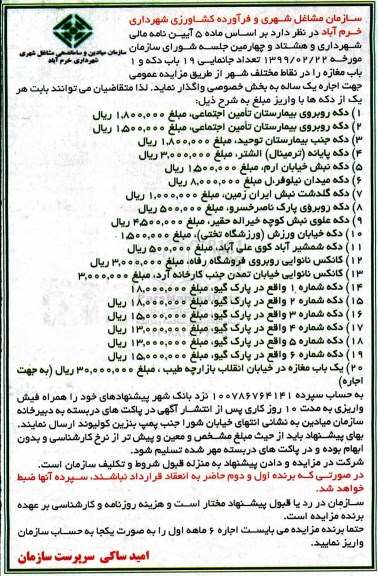 سازمان میادین و ساماندهی مشاغل شهری
شهرداری خرم آباد
سازمان مشاغل شهری و فرآورده کشاورزی شهرداری
خرم آباد در نظر دارد بر اساس ماده ۵ آیین نامه مالی
شهرداری و هشتاد و چهارمین جلسه شورای سازمان
مورخه ۱۳۹۹/۰۲/۲۲ تعداد جانمایی ۱۹ باب دکه و ۱
باب مغازه را در نقاط مختلف شهر از طریق مزایده عمومی
جهت اجاره یک ساله به بخش خصوصی واگذار نماید. لذا متقاضیان می توانند بابت هر
یک از دکه ها با واریز مبلغ به شرح ذیل:
۱) دکه روبروی بیمارستان تأمین اجتماعی، مبلغ ۱,۸۰۰,۰۰۰ ریال
۲) دکه روبروی بیمارستان تأمین اجتماعی، مبلغ ۱,۵۰۰,۰۰۰ ریال
۳) دکه جنب بیمارستان توحید، مبلغ ۱,۸۰۰,۰۰۰ ریال
۴) دکه پایانه (ترمینال) الشتر، مبلغ ۳,۰۰۰,۰۰۰ ریال
۵) دکه نبش خیابان ارم، مبلغ ۱,۵۰۰,۰۰۰ ریال
۶) دکه میدان نیلوفر،ل مبلغ ۸,۰۰۰,۰۰۰ ریال
۷) دکه گلدشت نبش ایران زمین، مبلغ ۱,۰۰۰,۰۰۰ ریال
۸) دکه روبروی پارک ناصرخسرو، مبلغ ۵۰۰,۰۰۰ ریال
۹) دکه علوی نبش کوچه خیراله حقیر، مبلغ ۴,۵۰۰,۰۰۰ ریال
۱۰) دکه خیابان ورزش (ورزشگاه تختی)، مبلغ ۱,۵۰۰,۰۰۰
۱۱) دکه شمشیر آباد کوی علی آباد، مبلغ ۵۰۰,۰۰۰ ریال
۱۲) کانکس نانوایی روبروی فروشگاه رفاه، مبلغ ۳,۰۰۰,۰۰۰ ریال
۱۳) کانکس نانوایی خیابان تمدن جنب کارخانه آرد، مبلغ ۳,۰۰۰,۰۰۰
۱۴) دکه شماره ۱ واقع در پارک گیو، مبلغ ۱۸,۰۰۰,۰۰۰
۱۵) دکه شماره ۲ واقع در پارک گیو، مبلغ ۱۸,۰۰۰,۰۰۰ ریال
۱۶) دکه شماره ۳ واقع در پارک گیو، مبلغ ۱۵,۰۰۰,۰۰۰ ریال
۱۷) دکه شماره ۴ واقع در پارک گیو، مبلغ ۱۳,۰۰۰,۰۰۰ ریال
۱۸) دکه شماره ۵ واقع در پارک گیو، مبلغ ۱۳,۰۰۰,۰۰۰ ریال
۱۹) دکه شماره ۶ واقع در پارک گیو، مبلغ ۱۵,۰۰۰,۰۰۰ ریال
۲۰) یک باب مغازه در خیابان انقلاب بازارچه طیب ، مبلغ ۳۰,۰۰۰,۰۰۰ ریال (به جهت
اجاره)
به حساب سپرده ۱۰۰۷۸۶۷۶۴۱۴۱ نزد بانک شهر پیشنهادهای خود را همراه فیش
واریزی به مدت ۱۰ روز کاری پس از انتشار آگهی در پاکت های دربسته به دبیرخانه
سازمان میادین به نشانی انتهای خیابان شورا جنب پمپ بنزین کولیوند ارسال نمایند.
بهای پیشنهاد باید از حیث مبلغ مشخص و معین و پیش تر از نرخ کارشناسی و بدون
ابهام بوده و در پاکت های دربسته مهر شده تسلیم شود.
شرکت در مزایده و دادن پیشنهاد به منزله قبول شروط و تکلیف سازمان است.
در صورتی که برنده اول و دوم حاضر به انعقاد قرارداد نباشند، سپرده آنها ضبط
خواهد شد.
سازمان در رد یا قبول پیشنهاد مختار است و هزینه روزنامه و کارشناسی بر عهده
برنده مزایده است.
حتما برنده مزایده می بایست اجاره ۶ ماهه اول را به صورت یکجا به حساب سازمان
واریز نمایید.
امید ساکی سرپرست سازمان